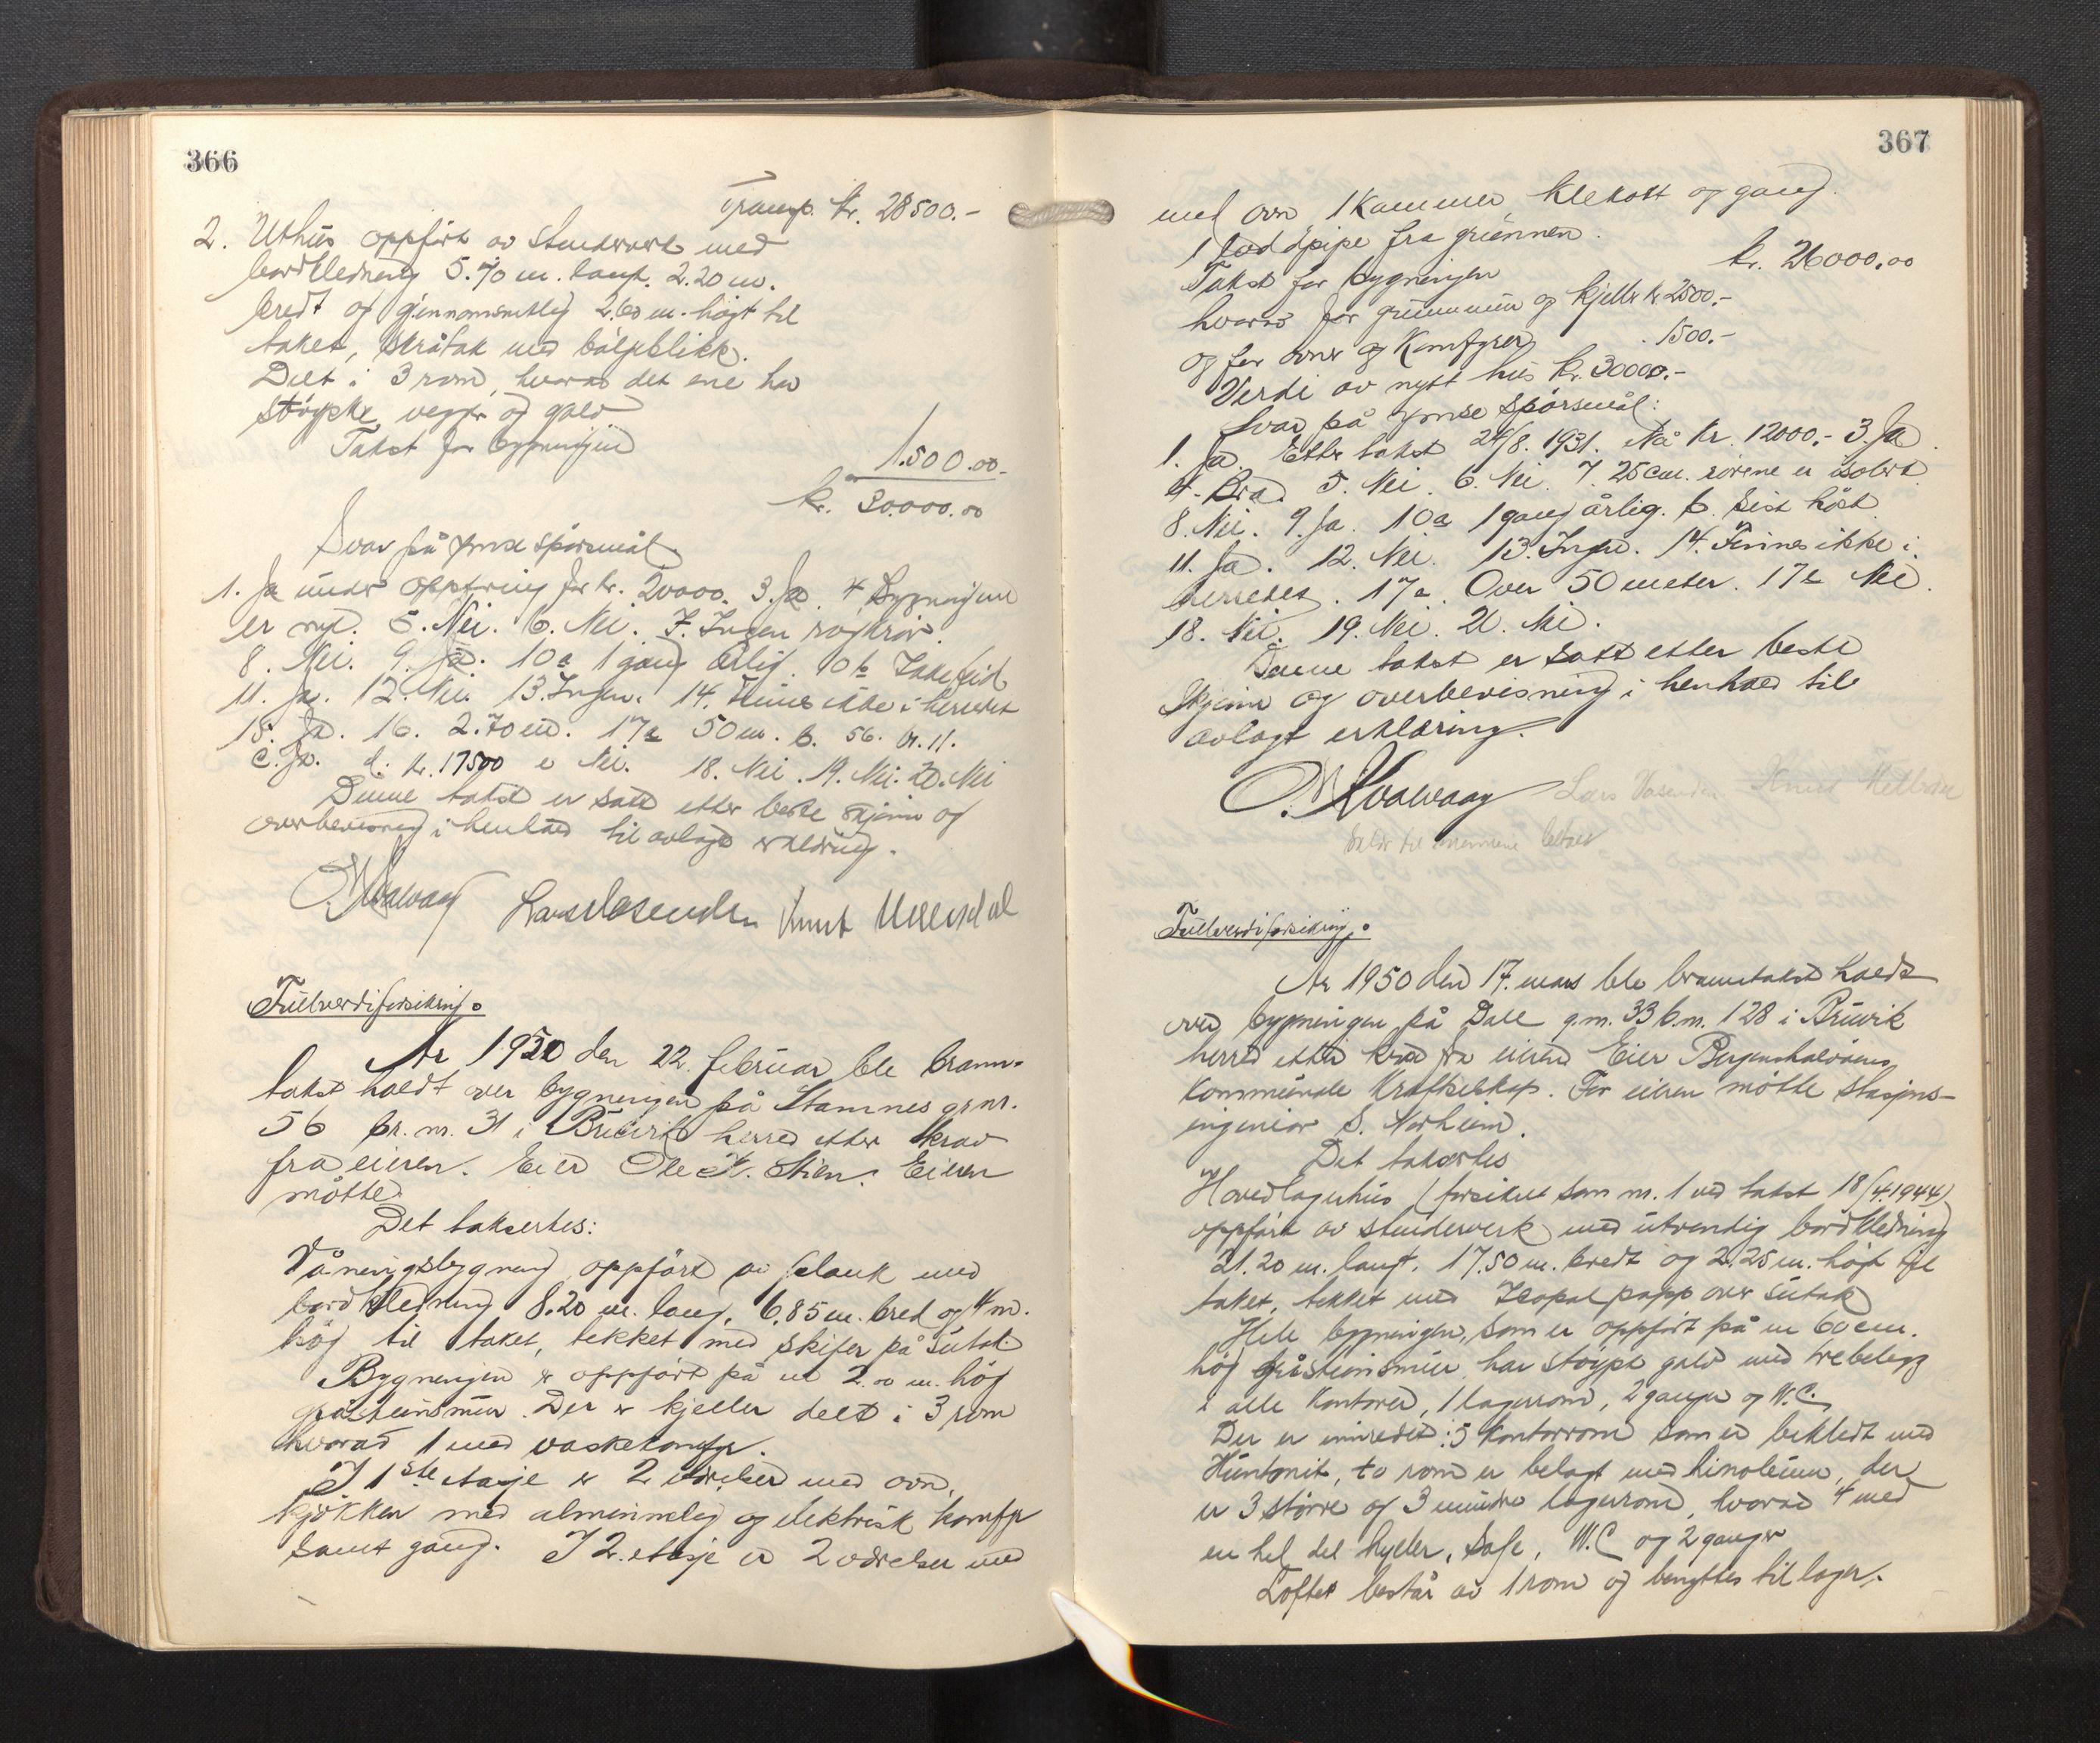 366
Transp. kr. 28500.-
2. Uthus oppført av stenderverk med
bordkledning 5.70 m. langt. 2.20 m.
bredt og gjennomsnitlig 2.60 m. høgt til
taket, skråtak med bølgeblikk.
Delt i 3 rom, hvorav det ene har
støypte vegger og golv
Takst for bygningen
1.500.00.-
kr. 30.000.00
Svar på ymse spörsmål.
1. Ja under oppföring for kr. 20000. 3. Ja. 4 Bygningen
er ny. 5. Nei. 6. Nei. 7. Ingen røykrör.
8. Nei. 9. Ja. 10a 1 gang årlig. 10 b
11. Ja. 12. Nei. 13. Ingen. 14. Finnes ikke i herredet
15. Ja. 16. 2.70 m. 17a 50 m. b. 56. br. 11.
c. Ja. d. kr. 17500 e Nei. 18. Nei. 19. Nei. 20. Nei
Denne takst er satt etter beste skjönn og
overbevisning i henhold til avlagt erklæring.
O. Kvalvaag Lars Vasenden Knut
Fullverdiforsikring.
År 1950 den 22. februar ble brann-
takst holdt over bygningen på Stamnes gr.nr.
56 br. nr. 31 i Bruvik herred etter krav
fra eieren. Eier Ole K. Stien. Eieren
mötte.
Det takserkes:
Våningsbygning oppfört av plank med
bordkledning 8.20 m. lang, 6,85 m. bred og 4 m.
hög til taket, tekket med skifer på sutak
Bygningen er oppfört på en 2.00 m. hög
gråsteinsmur. Der er kjeller delt i 3 rom
hvorav 1 med vaskekomfyr.
I 1ste etasje er 2 værelser med ovn,
kjökken med alminnelig og elektrisk komfyr
samt gang. I 2. etasje er 2 værelser med
367
med ovn 1 kammer, klekott og gang.
1 pipe fra grunnen.
Takst for bygningen kr. 26000.00
hvorav for grunnmur og kjeller kr 2500.-
og for ovner og komfyrer 1500.-
Verdi av nytt hus kr. 30000.-
Svar på ymse spörsmål:
1. Ja. Etter takst 24/8. 1931. Nå kr. 12000.- 3. Ja.
4. Bra. 5. Nei. 6. Nei. 7. 25 cm. rörene er isolert.
8. Nei. 9. Ja. 10a 1 gang årlig. b. Sist höst.
11. Ja. 12. Nei. 13. Ingen. 14. Finnes ikke i
herredet. 17a. Over 50 meter. 17e Nei.
18. Nei. 19. Nei. 20. Nei.
Denne takst er satt etter beste
skjönn og overbevisning i henhold til
avlagt erklæring.
O. Kvalvaag Lars Vasenden Knut
til mennene betalt
Fullverdiforsikring.
År 1950 den 17. mars ble branntakst holdt
over bygningen på Dale g.nr. 33 b.nr. 128 i Bruvik
herred etter krav fra eieren Eier Bergenshalvöens
kommunale kraftselskap. For eieren mötte stasjons-
ingeniör S. Norheim.
Det takserkes
Hovedlagerhus (forsikret som nr. 1 ved takst 18/4.1944)
oppfört av stenderverk med utvendig bordkledning
21.20 m. langt. 17.50 m. bredt og 2.25 m. högt til
taket, tekket med Icopal papp over sutak
Hele bygningen, som er oppfört på en 60 cm.
hög gråsteinsmur har stöypt golv med trebelegg
i alle kontorer, 1 lagerrom, 2 ganger og W.C.
Der er innredet: 5 kontorrom som er bekledt med
Huntonit, to rom er belagt med linoleum, der
er 3 större og 3 mindre lagerrom, hvorav 4 med
en hel del hyller, Safe, W.C og 2 ganger
Loftet består av 1 rom og benyttes til lager.